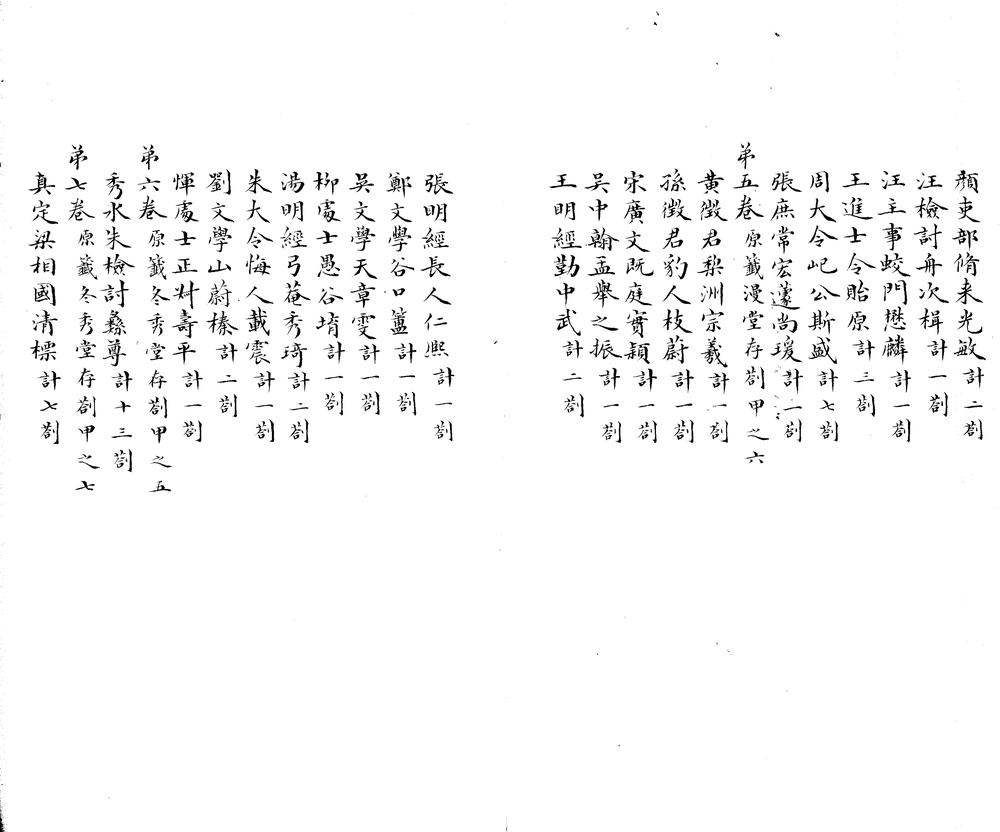 顏吏部脩来光敏計二劄
汪檢討舟次楫計一劄
汪主事蛟門懋麟計一劄
王進士令貽原計三劄
周大令屺公斯盛計七劄
張庶常宏蘧尚瑗計一劄
弟五卷原籤漫堂存劄甲之六
黄徵君梨洲宗羲計一劄
孫徵君豹人枝蔚計一劄
宋廣文既庭實穎計一劄
吳中翰孟舉之振計一劄
王明經勤中武計二劄
張明經長人仁熙計一劄
鄭文學谷口簠計一劄
吳文學天章雯計一劄
柳處士愚谷堉計一劄
湯明經弓菴秀琦計二劄
朱大令悔人載震計一劄
劉文學山蔚榛計二劄
惲處士正叔壽平計一劄
弟六卷原籤冬秀堂存劄甲之五
秀水朱檢討彝尊計十三劄
弟七卷原籤冬秀堂存劄甲之七
真定梁相國清標計七劄